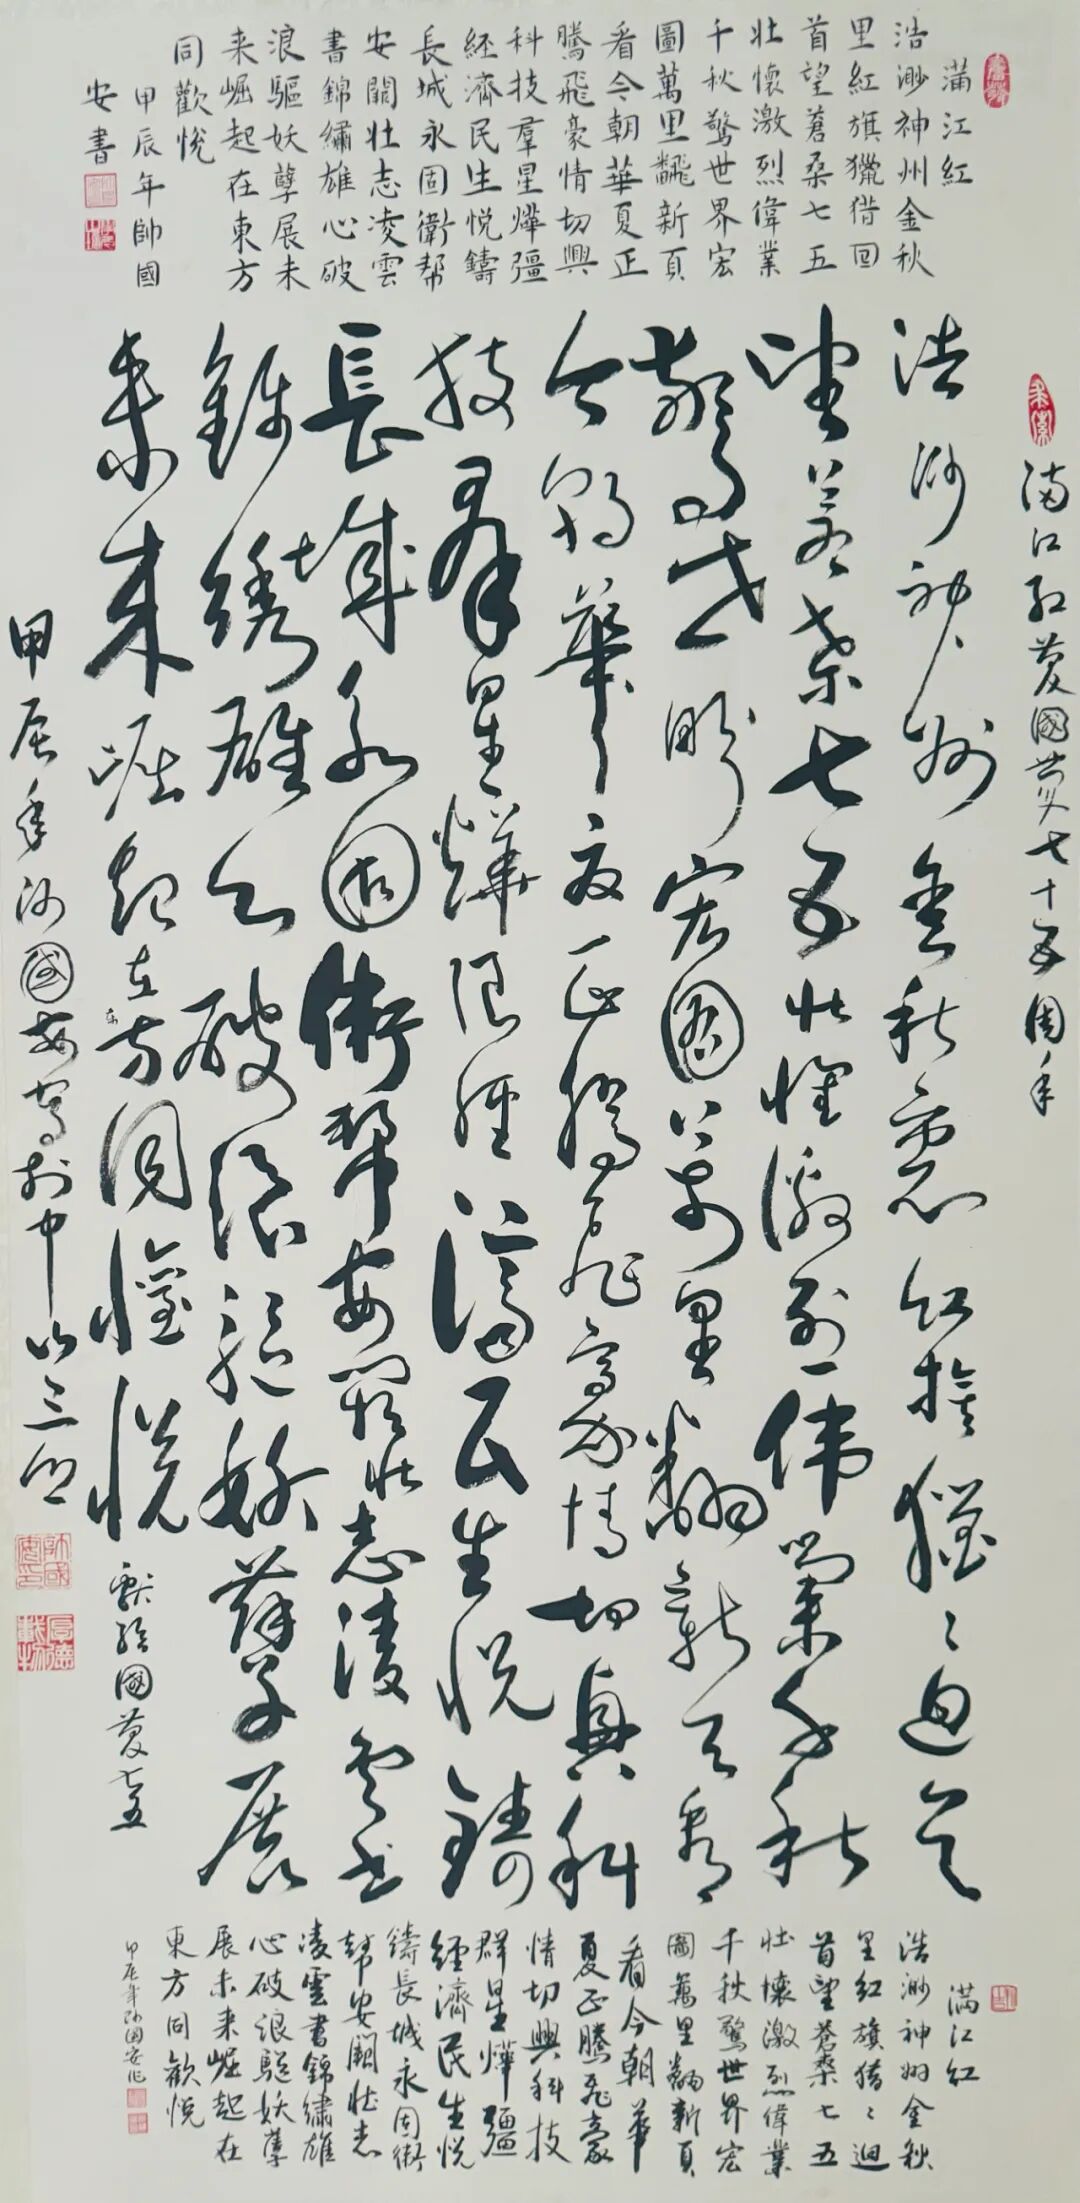 满江红
浩渺神州金秋
里紅旗獵猎回
首望蒼桑七五
壯懷激烈偉業
千秋驚世界宏
圖萬里翻新頁
看今朝華夏正
騰飛豪情切興
科技羣星燁彊
經濟民生悅鑄
長城永固衛帮
安闊壯志凌雲
書錦繡雄心破
浪驅妖孽展未
来崛起在東方
同歡悅
甲辰年帥國
安書
满江紅慶國慶七十五周年
浩渺神州金秋裏紅旗獵〻迴首
望蒼桑七五壯懷激烈偉業千秋
驚世界宏圖萬里翻新頁看
今朝華夏正騰飛豪情切興科
技羣星燁彊經濟民生悅鑄
長城永固衛幇安闊壯志凌雲書
錦绣雄心破浪驅妖孽展
未来崛起在東方同懽悅
獻給國慶七五
甲辰年帅國安書於中山三
满江红
浩渺神州金秋
里红旗猎〻迴
首望蒼桑七五
壯懷激烈偉業
千秋驚世界宏
圖萬里翻新頁
看今朝華
夏正騰飛豪
情切興科技
群星燁彊
經濟民生悅
鑄長城永固衛
幇安闊壯志
凌雲書錦繡雄
心破浪驅妖孽
展未来崛起在
東方同歡悅
甲辰年帅國安作